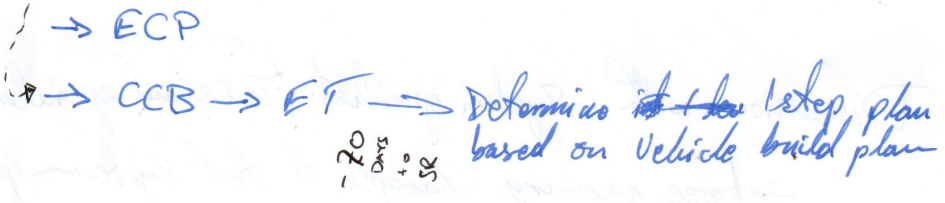 → ECP
→ CCB → ET → Determine 1step plan
based on Vehicle build plan
-70
DAYS
to
SR